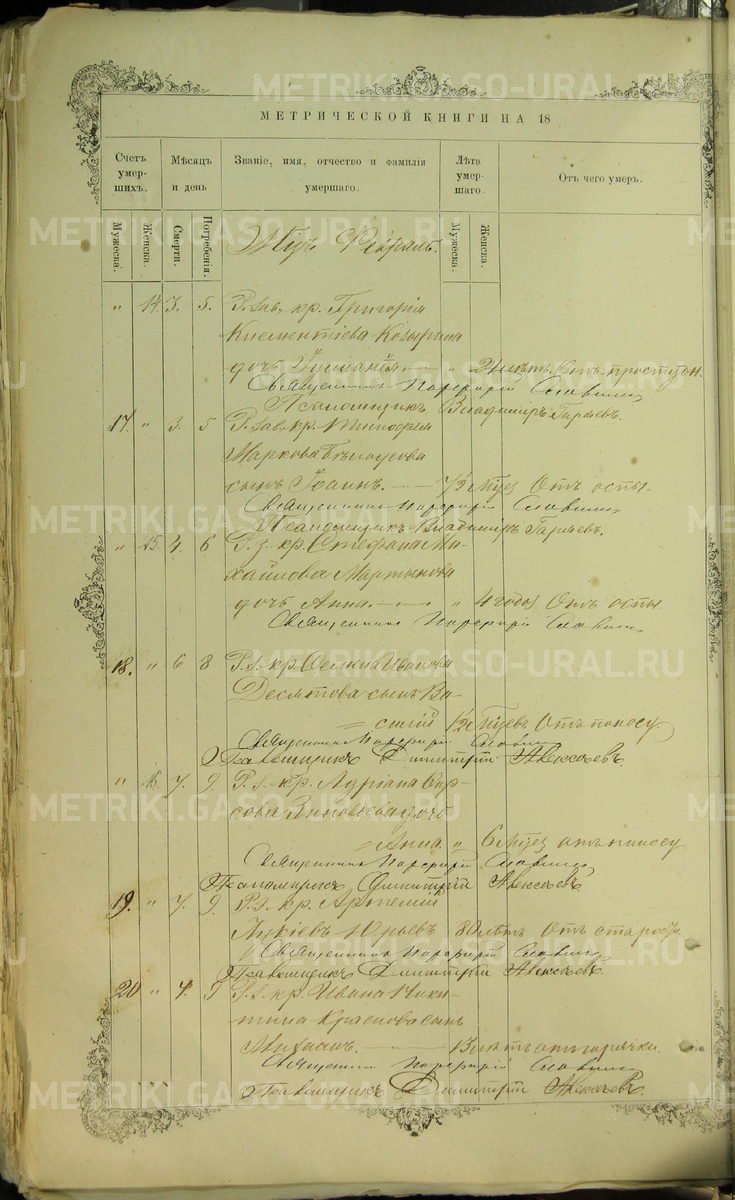 METRIKI.GASO-URAL.RU
МЕТРИЧЕСКОЙ КНИГИ НА 18
Счетъ умер-шихъ. Мѣсяцъ и день Званіе, имя, отчество и фамилія умершаго. Лѣта умер-шаго. Отъ чего умеръ.
Мужеска. Женска. Смерти. Погребенія. Мужеска. Женска.
Мцъ Февраль.
„ 14. 3. 5. Р. зав. кр. Григорія
Климентіева Козырина
дочь „ Отъ простуды.
Священникъ Порфирій Славнинъ
Псаломщикъ Владимиръ Гаряевъ.
17. „ 3. 5 Р. зав. кр.
Маркова Бѣлоусова
сынъ Іоаннъ. Отъ оспы.
Священникъ Порфирій Славнинъ
Псаломщикъ Владимиръ Гаряевъ.
„ 15. 4. 6 Р. з. кр. Стефана Ми-
хайлова Мартынова
дочь Анна. „ 4 годовъ Отъ оспы
Священникъ Порфирій Славнинъ
18. „ 6 8 Р. з. кр. Иванова
Десятова сынъ Ва-
силій Отъ поносу.
Священникъ Порфирій Славнинъ
Димитрій Алексѣевъ.
„ 16. 7. 9. Р. з. кр. Адріана Фир-
сова Зиновьева дочь
Анна. „ 6 мцевъ отъ поносу
Священникъ Порфирій Славнинъ
Димитрій Алексѣевъ
19. „ 7. 9. Р. з. кр. Артемій
Юрьевъ 80 лѣтъ Отъ старости
Священникъ Порфирій Славнинъ
Димитрій Алексѣевъ
20 „ 7. 9 Р. з. кр. Ивана Ники-
тина Краснова сынъ
Михаилъ. 13 лѣтъ отъ горячки.
Священникъ Порфирій Славнинъ
Димитрій Алексѣевъ